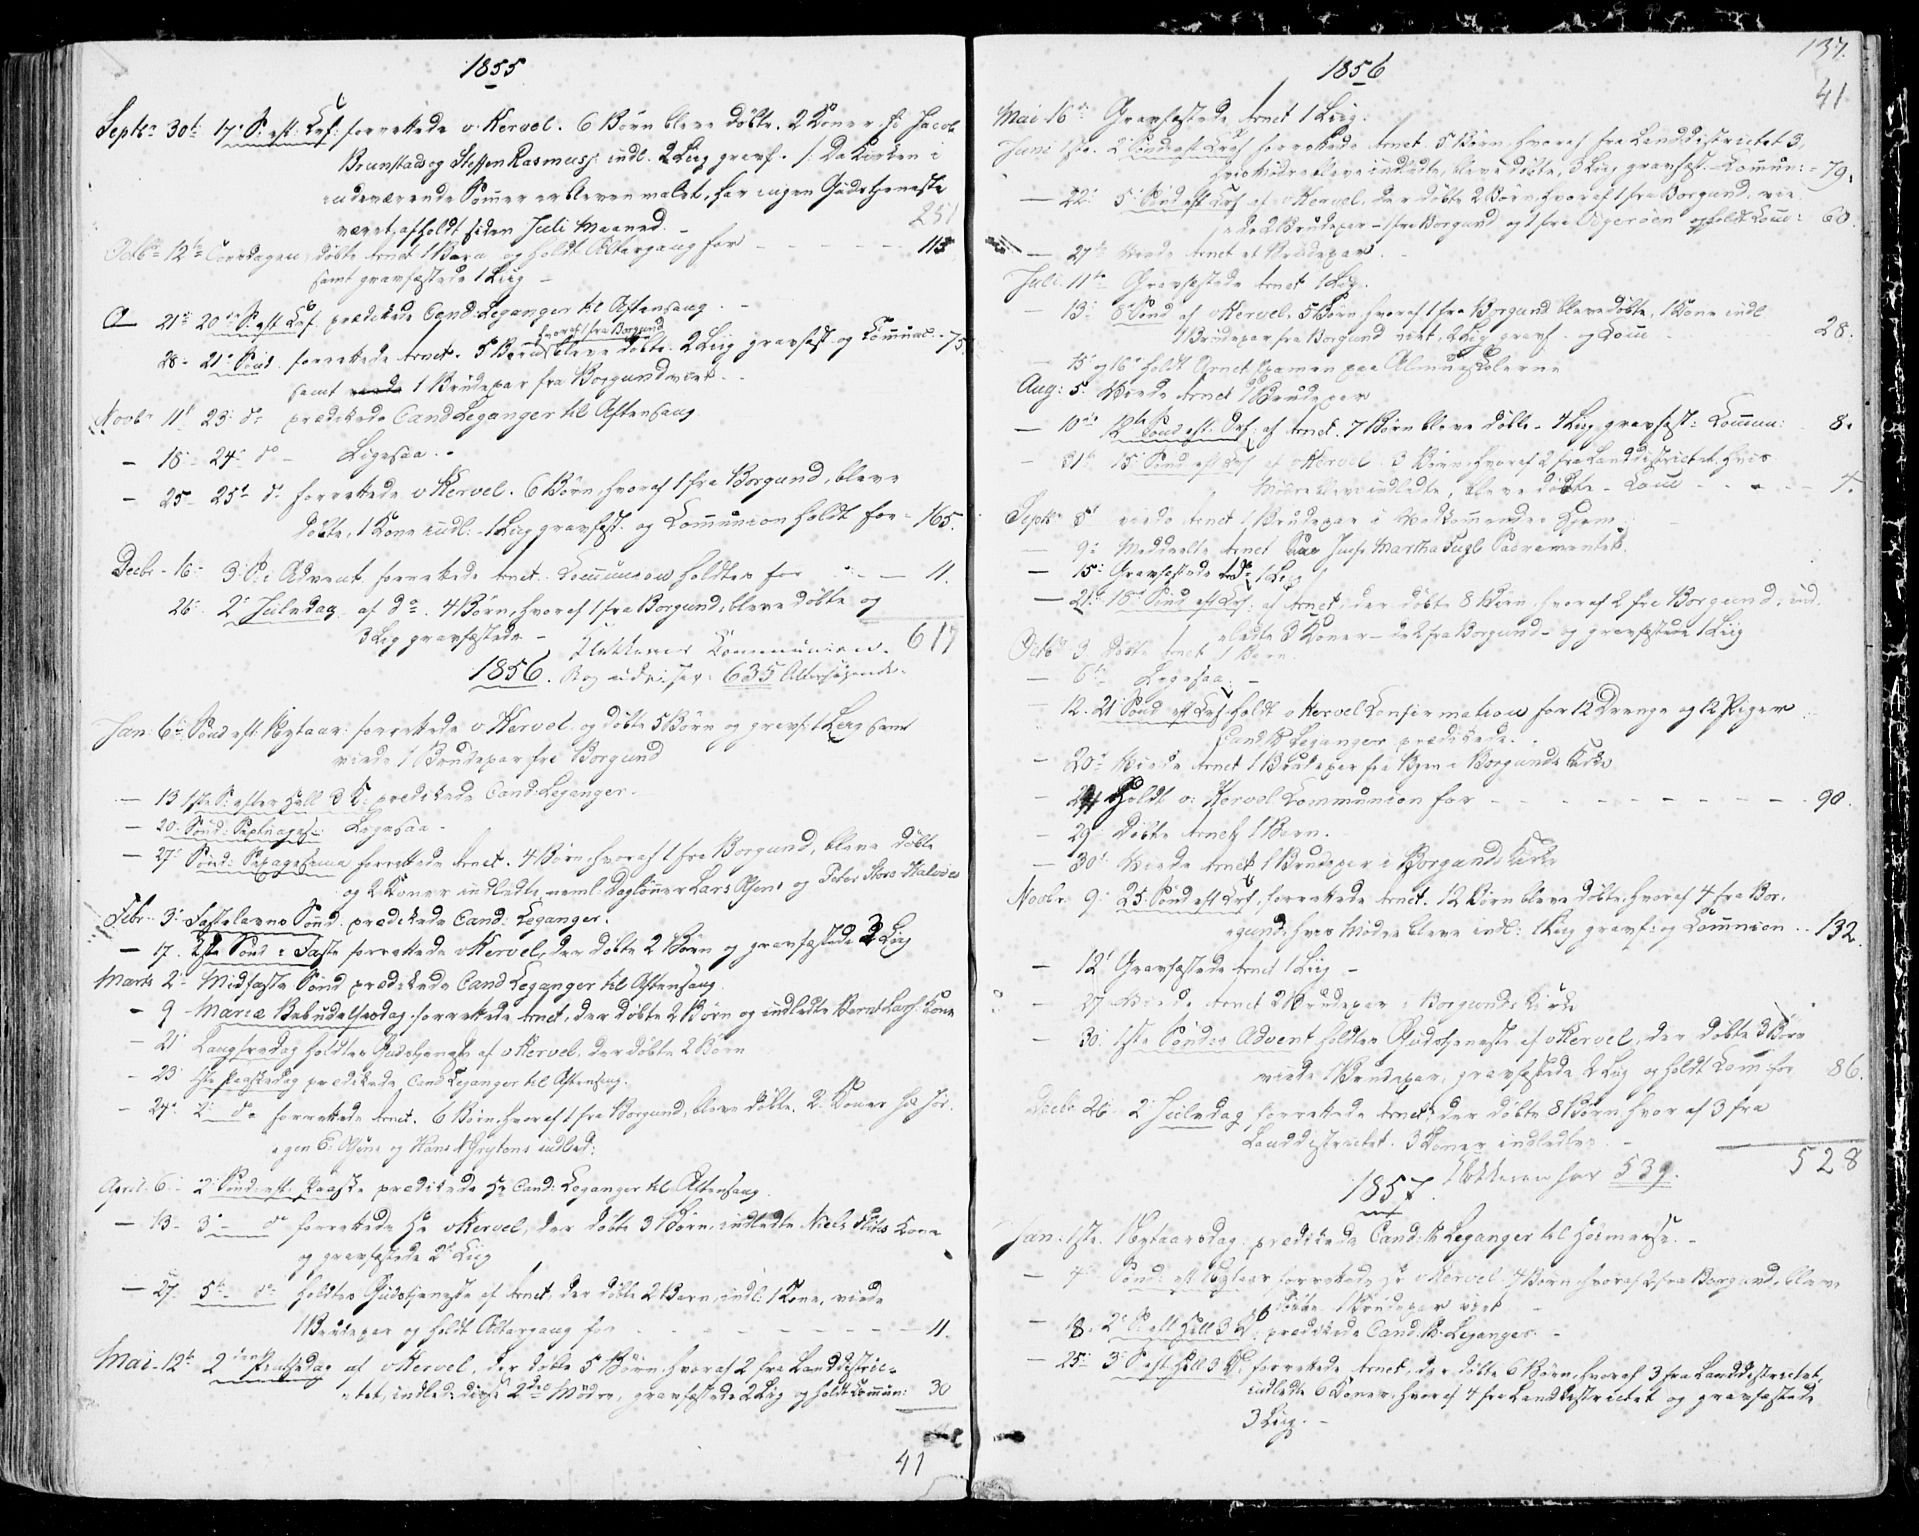 1855
Septbr 30te 17de S: eft: Trf: forrettede v: Kervel. 6 Børn bleve døbte. 2 Koner fr Jacob
Brunstad og Steffen Rasmuss: indl. 2 Liig gravf. /: Da Kirken i
indeværende Sommer er bleven malet, har ingen Gudstjeneste
været afholdt siden Juli Maaned. -
251
Octbr 12te Torsdagen døbte Arnet 1 Barn og holdt Altergang for - - - - - 113
samt gravfæstede 1 Liig -
21de 20de S: eft Trf. prædikede Cand: Leganger til Aftensang. -
hvoraf 1 fra Borgund
28 - 21de Sönd. forrettede Arnet. 5 Børn bleve døbte. 2 Liig gravfæst og Communi. - 75.
samt 1 Brudepar fra Borgund viet. -
Novbr 11te 23de do prædikede Cand Leganger til Aftensang
- 18 - 24de do - Ligesaa. -
- 25 - 25de do forrettede v Kervel. 6 Børn, hvoraf 1 fra Borgund, bleve
døbte, 1 Kone indl: - 1 Liig gravfæst. og Communion holdt for - 165.
Decbr - 16 - 3de S: i Advent forrettede Arnet. Communion holdtes for - - - 11.
26 2de Juledag af do. 4 Børn, hvoraf 1 fra Borgund, bleve døbte og
3 Liig gravfæstede - Klokkerens Communion. 617
1856. Bog udviser: 635 Altersøgende.
Jan: 6te Sönd eft: Nytaar: forrettede v Kervel og døbte 5 Børn og gravf: 1 Liig samt
viede 1 Brudepar fra Borgund
- 13 1ste S: efter Hell 3 K: prædikede Cand: Leganger.
- 20 - Sönd: Septuages: Ligesaa -
- 27de Sönd: Sexagesima forrettede Arnet. 4 Børn, hvoraf 1 fra Borgund, bleve døbte
og 2 Koner indledte, neml. Daglønner Lars Olsens og Peter
Febr. 3de Fastelavns Sönd. prædikede Cand: Leganger.
- 17. 2den Sönd i Faste forrettede v Kervel, der døbte 2 Børn og gravfæstede 3 Liig
Marts 2de Midfaste Sönd prædikede Cand Leganger til Aftensang.
- 9 Mariæ Bebudelsesdag forrettede Arnet, der døbte 2 Børn og indledte Bernt Lars: Kone
- 21 Langfredag holdtes Gudstjeneste af v Kervel, der døbte 2 Børn
- 23 1ste Paaskedag prædikede Cand Leganger til Aftensang.
- 24de 2de do forrettede Arnet. 6 Børn, hvoraf 1 fra Borgund, bleve døbte. 2 Koner fr Jør-
gen E: Olsens og Hans Grytens indled:
April 6 - 2de Sönd: eft: Paaske prædikede Hr Cand: Leganger til Aftensang
- 13 - 3de - do forrettede Hr v Kervel, der døbte 3 Børn, indledte Niels Kone
og gravfæstede 2 Liig
- 27. 5te - do holdtes Gudstjeneste af Arnet, der døbte 2 Børn, indl: 1 Kone, viede
1 Brudepar og holdt Altergang for - - - - - - - 11.
Mai - 12te 2den Pintsedag af v Kervel, der døbte 5 Børn, hvoraf 2 fra Landdistric-
tet, indled: disse 2de Mødre, gravfæstede 2 Liig og holdt Commun: 30
41
137.
1856
41
Mai 16de Gravfæstede Arnet 1 Liig.
Juni 1ste. 2de Sönd eft Trf forrettede Arnet. 5 Børn hvoraf fra Landdistrictet 3,
hvis Mødre bleve indledte, bleve døbte, 3 Liig gravfæst. Commun: - 79.
- 22: 5te Sönd eft Trf af v Kervel, der døbte 2 Børn, hvoraf 1 fra Borgund, vie-
de 2 Brudepar - 1 fra Borgund og 1 fra og holdt Com: 60.
- 27de Viede Arnet et Brudepar.
Juli 11te Gravfæstede Arnet 1 Liig.
- 13: 8de Sönd af v Kervel, 5 Børn, hvoraf 1 fra Borgund bleve døbte, 1 Kone indl
1 Brudepar fra Borgund viet, 2 Liig gravf. og Com - 28.
- 15 og 16de holdt Arnet Examen paa Almueskolerne
Aug: 5. Viede Arnet 1 Brudepar
- 10de 12te Sönd eft: Trf: af Arnet. 7 Børn bleve døbte - 4 Liig gravfæst: Commun: 8.
- 31te 15de Sönd eft Trf af v Kervel. 3 Børn, hvoraf 2 fra Landdistrictet hvis
Mødre bleve indledte, bleve døbte - Com - - - - - 4.
Septbr 5te viede Arnet 1 Brudepar i Vedkommendes Hjem.
- 9: Meddeelte Arnet Martha Fugl Sacramentet.
- 15: Gravfæstede do 1 Liig
- 21de 18de Sönd eft Trf: af Arnet, der døbte 8 Børn hvoraf 2 fra Borgund, ind-
ledte 3 Koner - de 2 fra Borgund - og gravfæstede 1 Liig
Octbr 3. Døbte Arnet 1 Barn.
- 6te Ligesaa. -
12. 21de Sönd eft Trf. holdt v Kervel Confirmation for 12 Drenge og 12 Piger
Cand K Leganger prædikede.
- 20de Viede Arnet 1 Brudepar fra Byen i Borgunds Kirke
- 24 Holdt v: Kervel Communion for - - - - - - - - 90.
- 29 Døbte Arnet 1 Barn.
- 30te Viede Arnet 1 Brudepar i Borgunds Kirke
Novbr. 9: 25de Sönd eft Trf, forrettede Arnet. 12 Børn bleve døbte, hvoraf 4 fra Bor-
gund, hvis Mødre bleve indl: 1 Liig gravf: og Communion - - 132.
- 12te Gravfæstede Arnet 1 Liig -
- 27 Viede Arnet 2 Brudepar i Borgunds Kirke
- 30. 1ste Söndag Advent holdtes Gudstjeneste af v Kervel, der døbte 3 Børn
viede 1 Brudepar, gravfæstede 2 Liig og holdt Com for 86.
Decbr 26 - 2de Juledag forrettede Arnet, der døbte 8 Børn, hvor af 3 fra
Landdistrictet. 3 Koner indledtes. -
Klokkeren har 539. 528
1857.
Jan. 1ste. Nytaarsdag. prædikede Cand: K Leganger til Høimesse. -
- 4de Sönd: eft Nytaar forrettede Hr v Kervel. 4 Børn, hvoraf 2 fra Borgund, bleve
døbte 1 Brudepar viet -
- 18. 2de S: eft Hell 3 K: prædikede Cand. K. Leganger. -
- 25de 3de S eft Hell 3 K, forrettede Arnet, der døbte 6 Børn, hvoraf 3 fra Landdistrictet,
indledte 6 Koner, hvoraf 4 fra Landdistrictet og gravfæstede
3 Liig. -